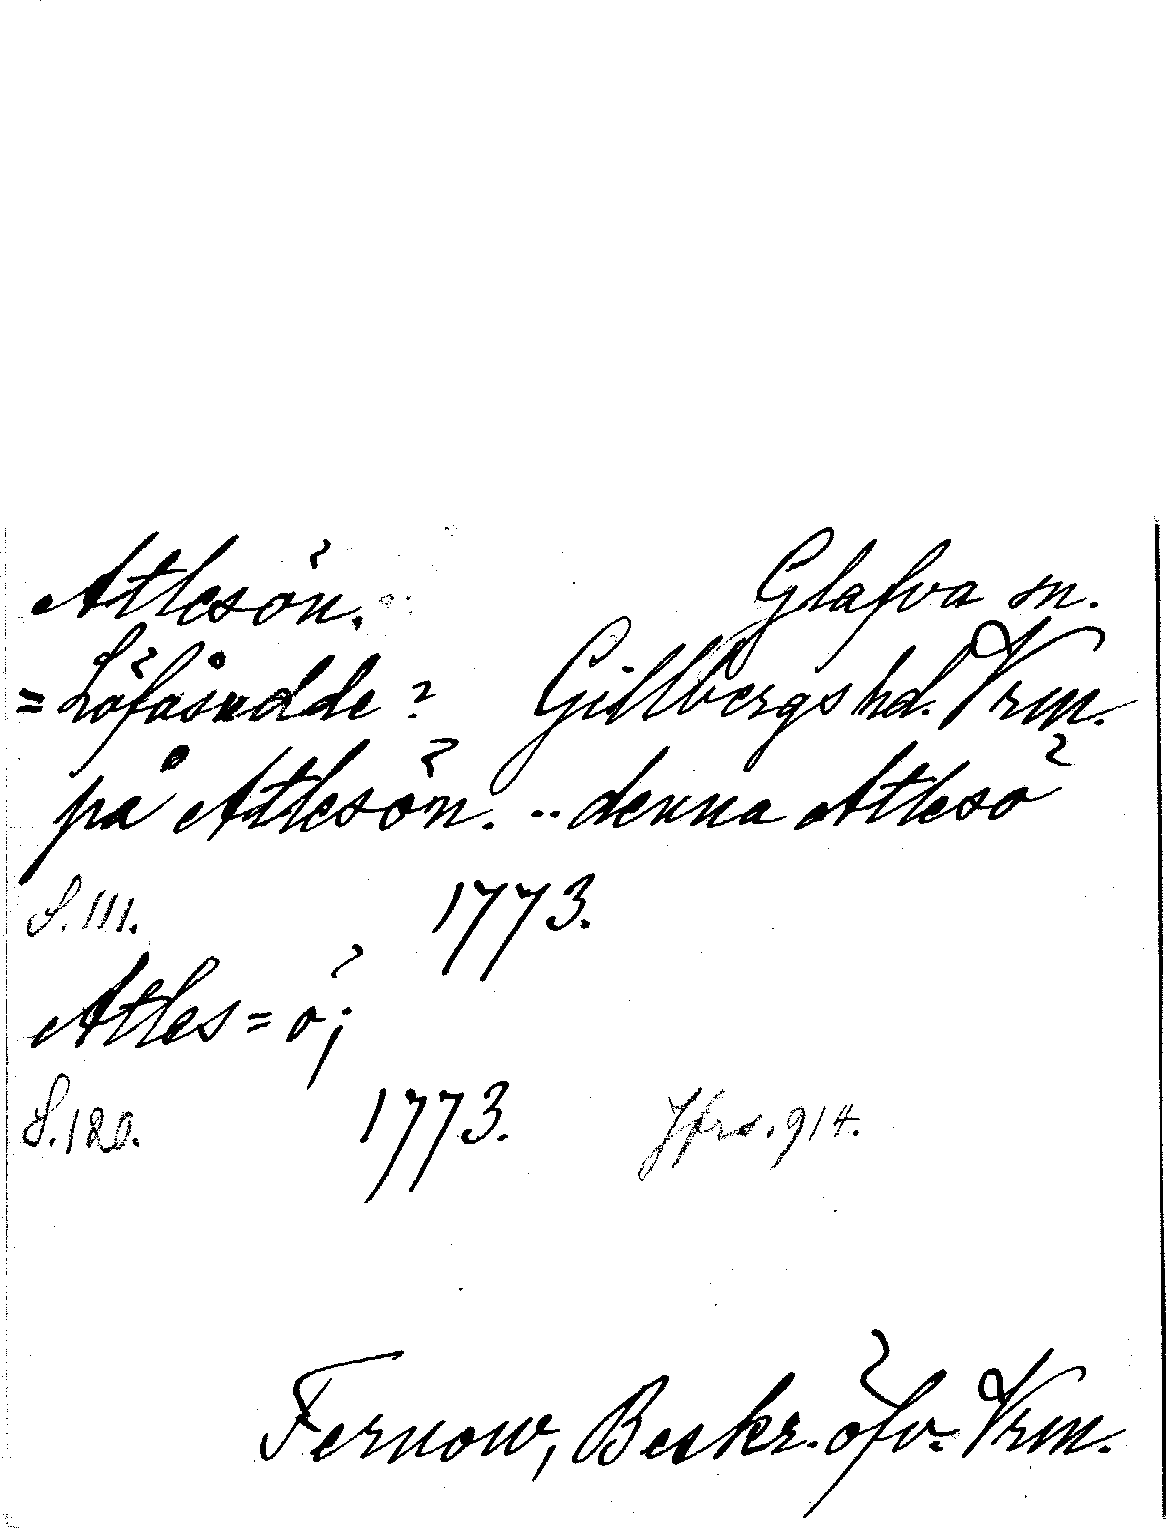 Atlesön. Glafva sn.
= Löfåsudde? Gillbergs hd. Vrm.
på Atlesön. .. denna Atlesö
S. 111. 1773.
Atles=ö;
S. 120. 1773. Jfrs. 914.
Fernow, Beskr. öfv. Vrm.